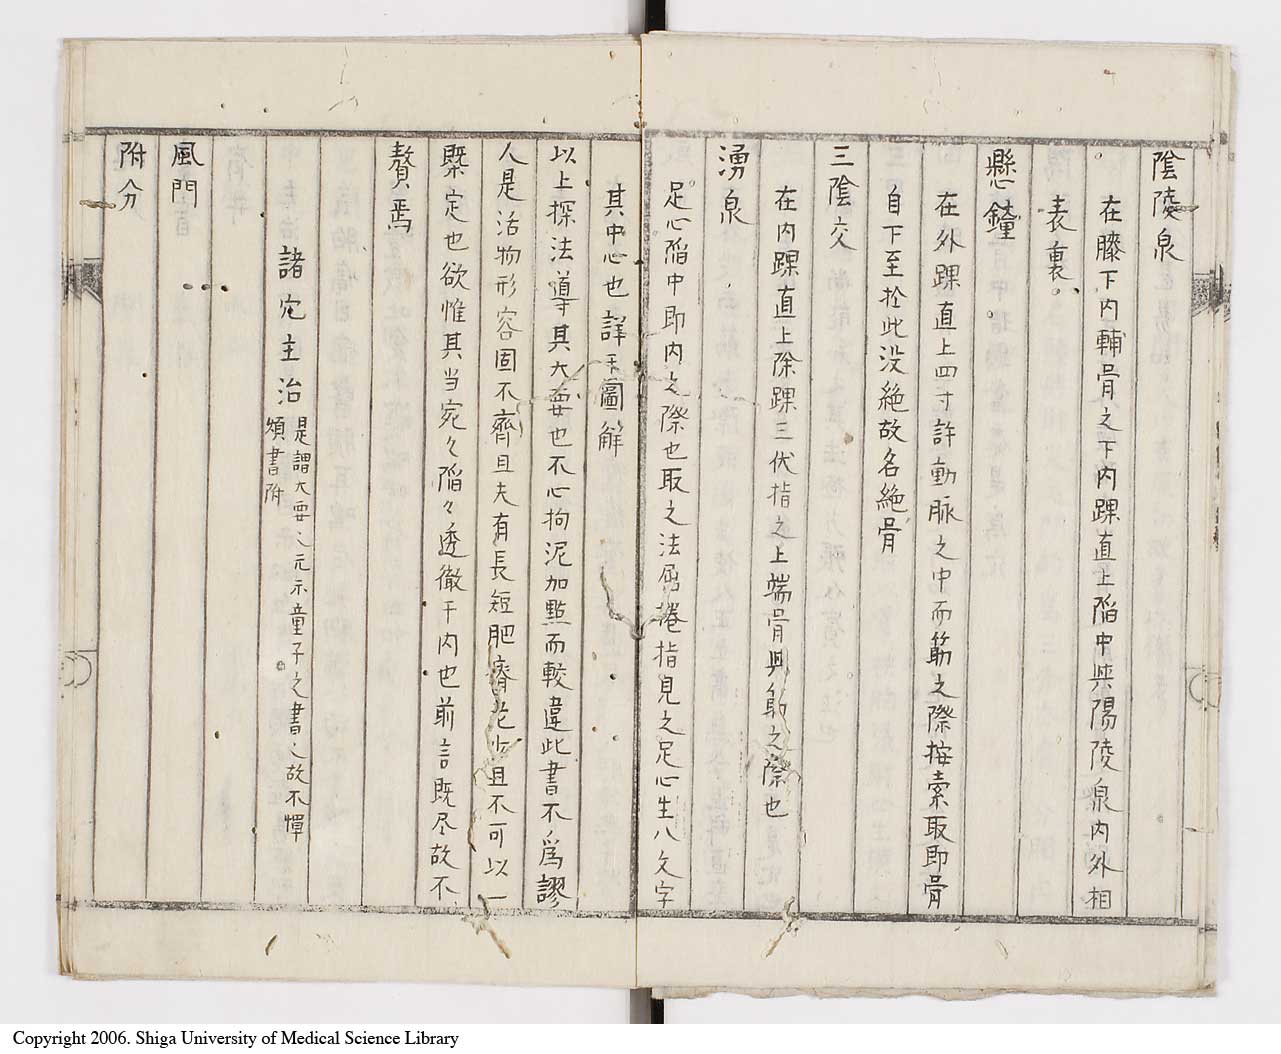 陰陵泉
在膝下内輔骨之下内踝直上陷中與陽陵泉内外相
表裏
懸鐘
在外踝直上四寸許動脈之中而筋之際按索取即骨
自下至於此没絶故名絶骨
三陰交
在内踝直上除踝三伏指之上端骨與筋之際也
湧泉
足心陷中即内之際也取之法屈捲指見之足心生八文字
其中心也詳于圖解
以上探法導其大要也不心拘泥加點而較違此書不爲謬
人是活物形容固不齊且夫有長短肥瘠老少且不可以一
槩定也欲惟其当宛々陷々透徹于内也前言既尽故不
贅焉
諸穴主治
是謂大要之元示童子之書之故不憚
煩書附
風門
附分
Copyright 2006. Shiga University of Medical Science Library